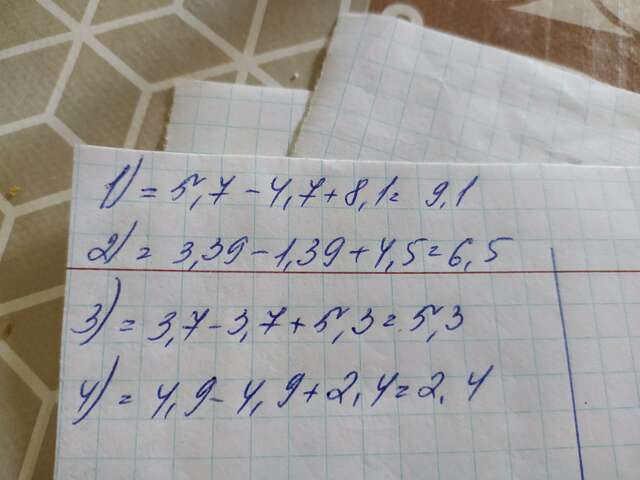 1) = 5,7 - 4,7 + 8,1 = 9,1
2) = 3,39 - 1,39 + 4,5 = 6,5
3) = 3,7 - 3,7 + 5,3 = 5,3
4) = 4,9 - 4,9 + 2,4 = 2,4